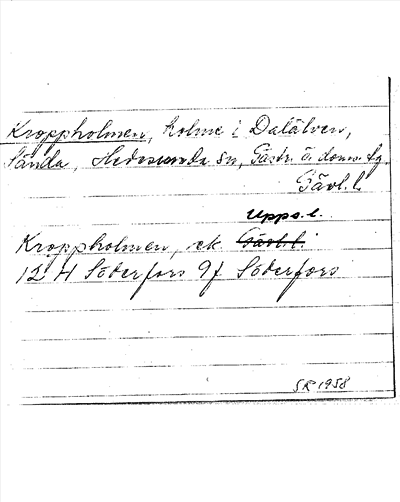 Kroppholmen, holme i Dalälven,
Sända, Hedesunda sn, Gästr. ö. doms. tg
Gävl. l.
Upps. l.
Kroppholmen, ek. Gävl. l.
12 H Söderfors 9f Söderfors
SR 1958